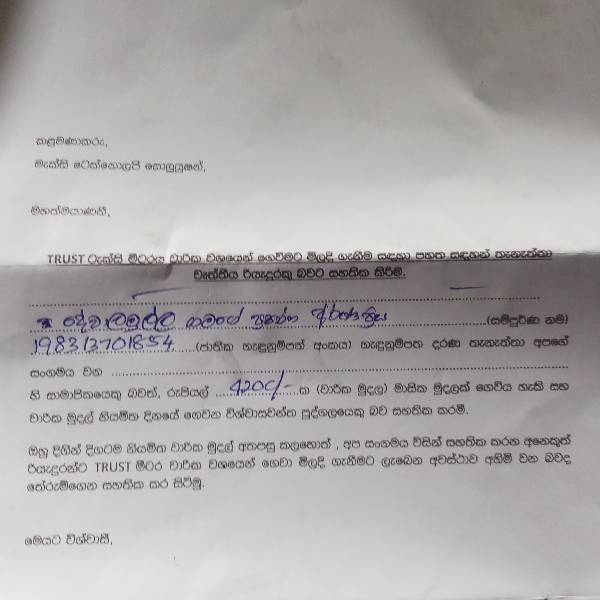 කළමණාකරු,
මැක්සි ටෙක්නොලජි සොලුයුෂන්,
මහත්මයාණනී,
TRUST ටැක්සි මීටරය වාරික වශයෙන් ගෙවීමට මිලදි ගැනීම සඳහා පහත සඳහන් තැනැත්තා
වෘත්තීය රියැදුරකු බවට සහතික කිරීම.
දේවලමුල්ල ගමගේ (සම්පූර්ණ නම)
198313701854 (ජාතික හැඳුනුම්පත් අංකය) හැඳුනුම්පත දරණ තැනැත්තා අපගේ
සංගමය වන
හි සාමාජිකයෙකු බවත්, රුපියල් 4200/- ක (වාරික මුදල) මාසික මුදලක් ගෙවිය හැකි සහ
වාරික මුදල් නියමිත දිනයේ ගෙවන විශ්වාසවන්ත පුද්ගලයෙකු බව සහතික කරමි.
ඔහු දිගින් දිගටම නියමිත වාරික මුදල් අතපසු කලහොත් , අප සංගමය විසින් සහතික කරන අනෙකුත්
රියැදුරන්ට TRUST මීටර වාරික වශයෙන් ගෙවා මිලදි ගැනීමට ලැබෙන අවස්ථාව අහිමි වන බවද
තේරුම්ගෙන සහතික කර සිටිමු.
මෙයට විශ්වාසී,